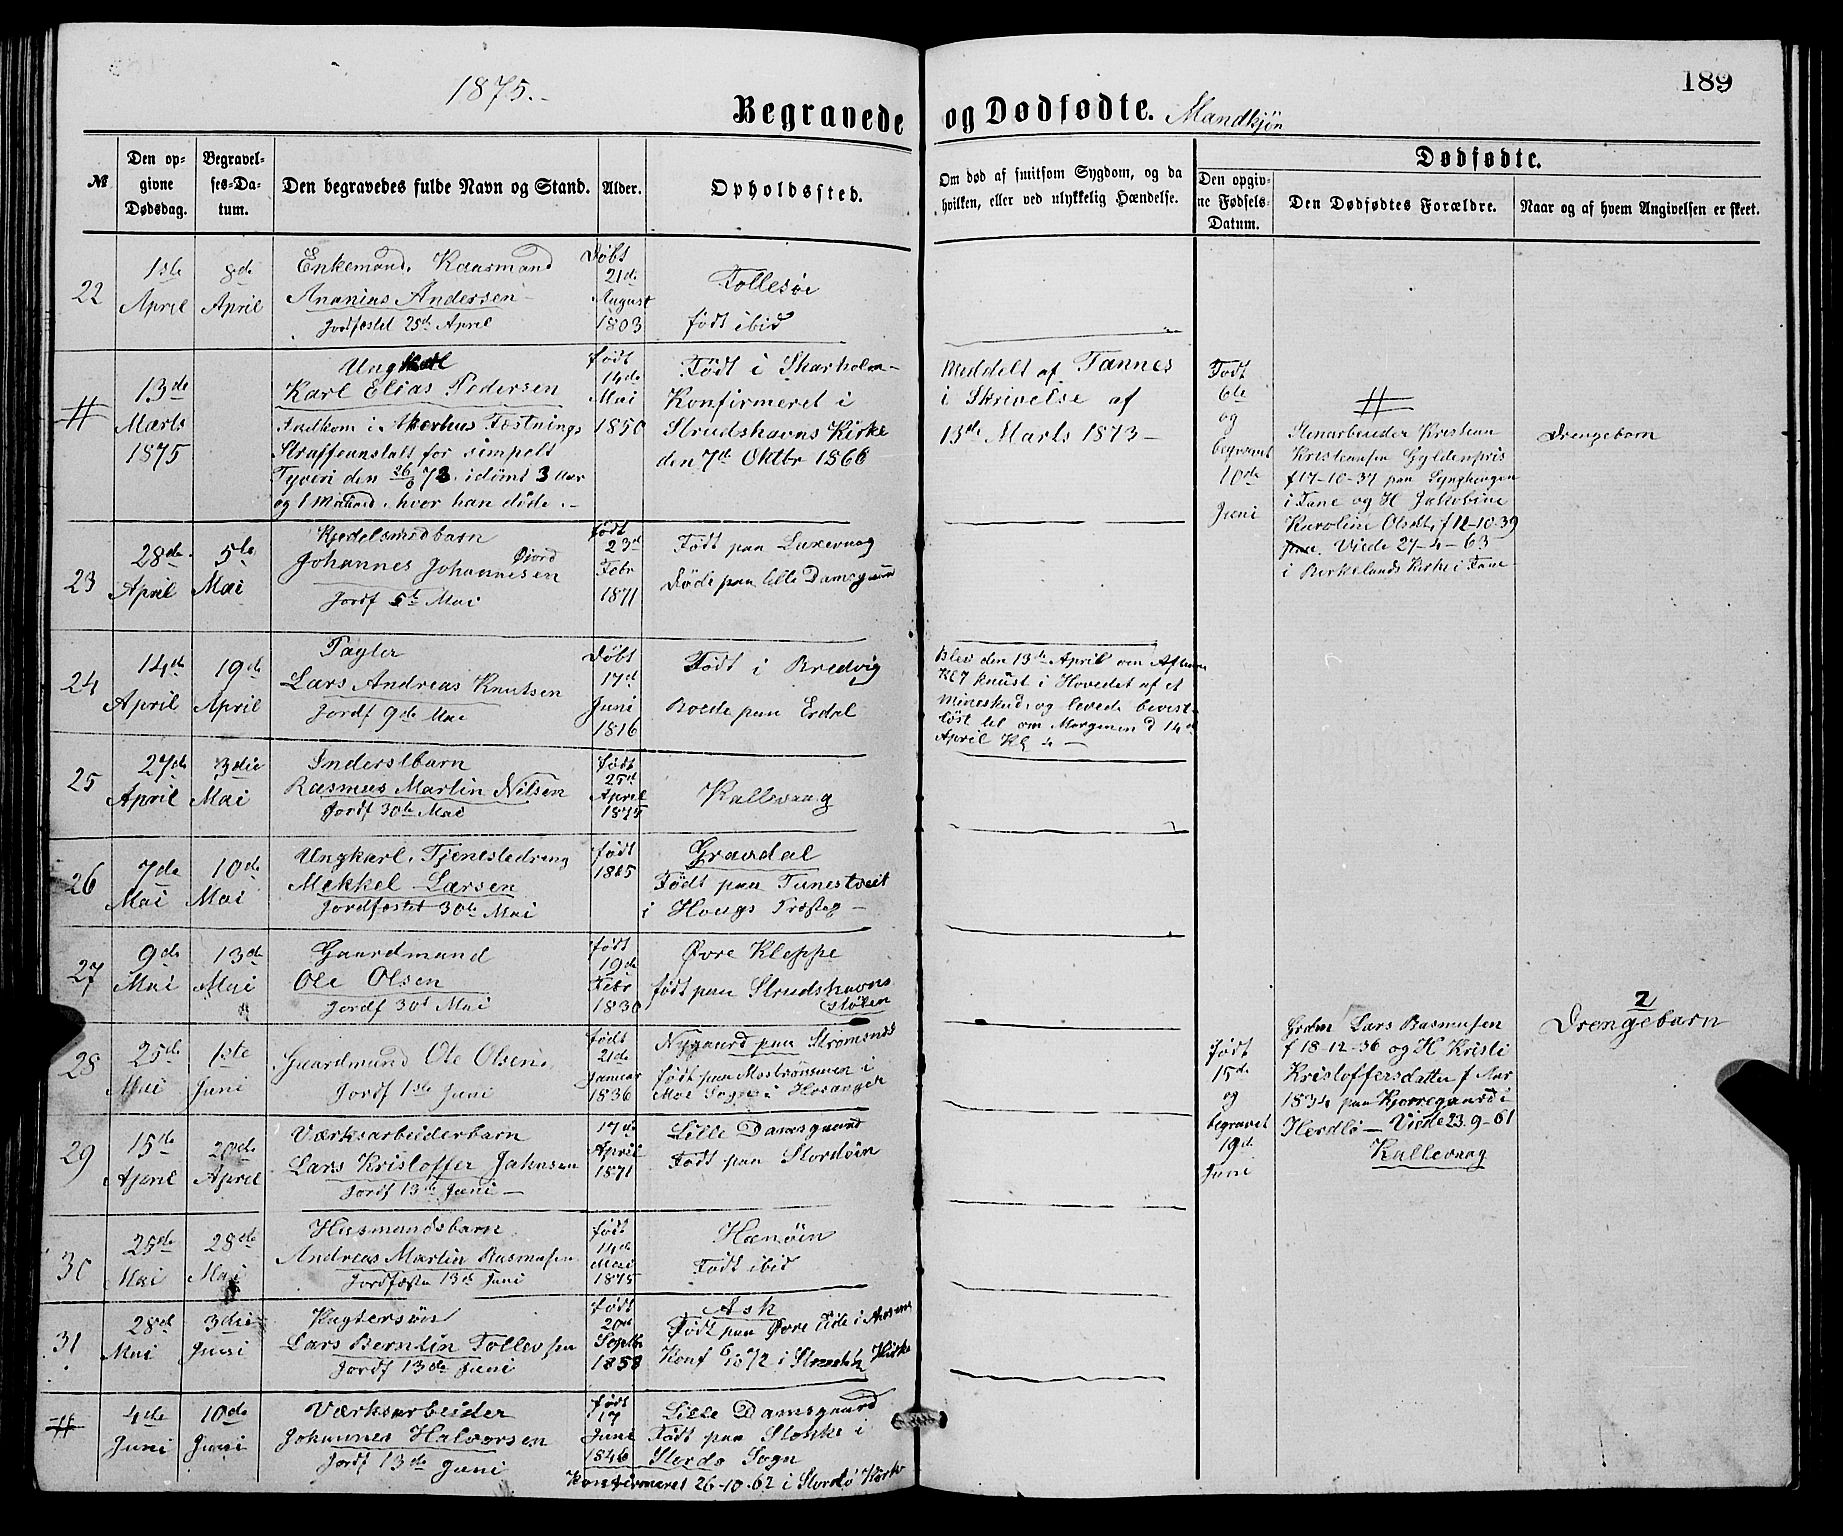 1875.-
189
Begravede og Dødfødte. Mandkjøn
№
Den opgivne Dødsdag.
Begravelses-Datum.
Den begravedes fulde Navn og Stand.
Alder.
Opholdssted.
Om død af smitsom Sygdom, og da
hvilken, eller ved ulykkelig Hændelse.
Dødfødte.
Den opgivne Fødsels-Datum.
Den Dødfødtes Forældre.
Naar og af hvem Angivelsen er skeet.
22
1ste
April
8de
April
Enkemand, Kaarmand
Ananias Andersen
Jordfæstet 25de April
Døbt
21de
August
1803
Follesøe
født ibid
#
13de
Marts
1875
Ungkarl
Karl Elias Pedersen
Indkom i Akerhus Fæstnings
Straffeanstalt for simpelt
Tyveri den 26/8 72. idømt 3 Aar
og 1 Maaned, hvor han døde.-
født
14de
Mai
1850
Født i Skarholm-
Konfirmeret i
Strudshavns Kirke
den 7de Oktbr 1866
Meddelt af Tannes
i Skrivelse af
13de Marts 1873-
23
28de
April
5te
Mai
Kjedelsmedbarn
Johannes Johannesen
Jordf 5te Mai
født
23de
Febr
1871
Født paa Laxevaag
Døde paa lille Damsgaard
24
14de
April
19de
April
Lars Andreas Knutsen
Jordf 9de Mai
Døbt
17de
Juni
1816
Født i Bredvig
Boede paa Erdal
Blev den 13de April om Aftenen
Kl 7 knust i Hovedet af et
Mineskud, og levede bevist-
løst til om Morgenen d 14de
April Kl 4 -
25
27de
April
3die
Mai
Inderstbarn
Rasmus Martin Nilsen
Jordf 30te Mai
født
25de
April
1875
Kallevaag
26
7de
Mai
10de
Mai
Ungkarl, Tjenestedreng
Mekkel Larsen
Jordfæstet 30te Mai
født
Gravdal
Født paa Tunestveit
i Hougs Præsteg-
27
9de
Mai
13de
Mai
Gaardmand
Ole Olsen
Jordf 30te Mai
født
19de
Febr
1830
Øvre Kleppe
født paa Strudshavns
28
25de
Mai
1ste
Juni
Gaardmand Ole Olsen
Jordf 1ste Juni
født
21de
Januar
1836
Nygaard paa Strømsnes
født paa Mostrømmen i
Moe Sogn i Hosanger
29
15de
April
20de
April
Værksarbeiderbarn
Lars Kristoffer Jahnsen
Jordf 13de Juni -
17de
April
1871
Lille Damsgaard
Født paa Stordøin
30
25de
Mai
28de
Mai
Husmandsbarn
Andreas Martin Rasmusen
Jordfæstet 13de Juni
født
14de
Mai
1875
Hanøin
Født ibid
31
28de
Mai
3die
Juni
Lars Berntin Tollevsen
Jordf 13de Juni
født
20de
Septbr
1858
Ask
Født paa Øvre Eide i
Konf 6/10 72 i Strudsh Kirke
#
4de
Juni
10de
Juni
Værksarbeider
Johannes Halvorsen
Jordf 13de Juni
født
17
Juni
1846
Lille Damsgaard
Født paa Stokke i
Stordø Sogn
Konfirmeret 26-10-62 i Stordø Kirke
Født
6te
og
begravet
10de
Juni
#
Stenarbeider Kristian
Kristiansen Gyldenpris
f 17-10-37 paa Lynghaugen
i Fane og H Jakobine
Karoline Olsdtr f 12-10-39
Viede 27-4-63
i Birkelands Kirke i Fane
Drengebarn
Født
15de
og
begravet
19de
Juni
Grdm Lars Rasmusen
f 18-12-36 og H Kristi
Kristoffersdatter f Aar
1834 paa Kjørregaard i
Herdlø - Viede 23-9-61
Kallevaag
2
Drengebarn